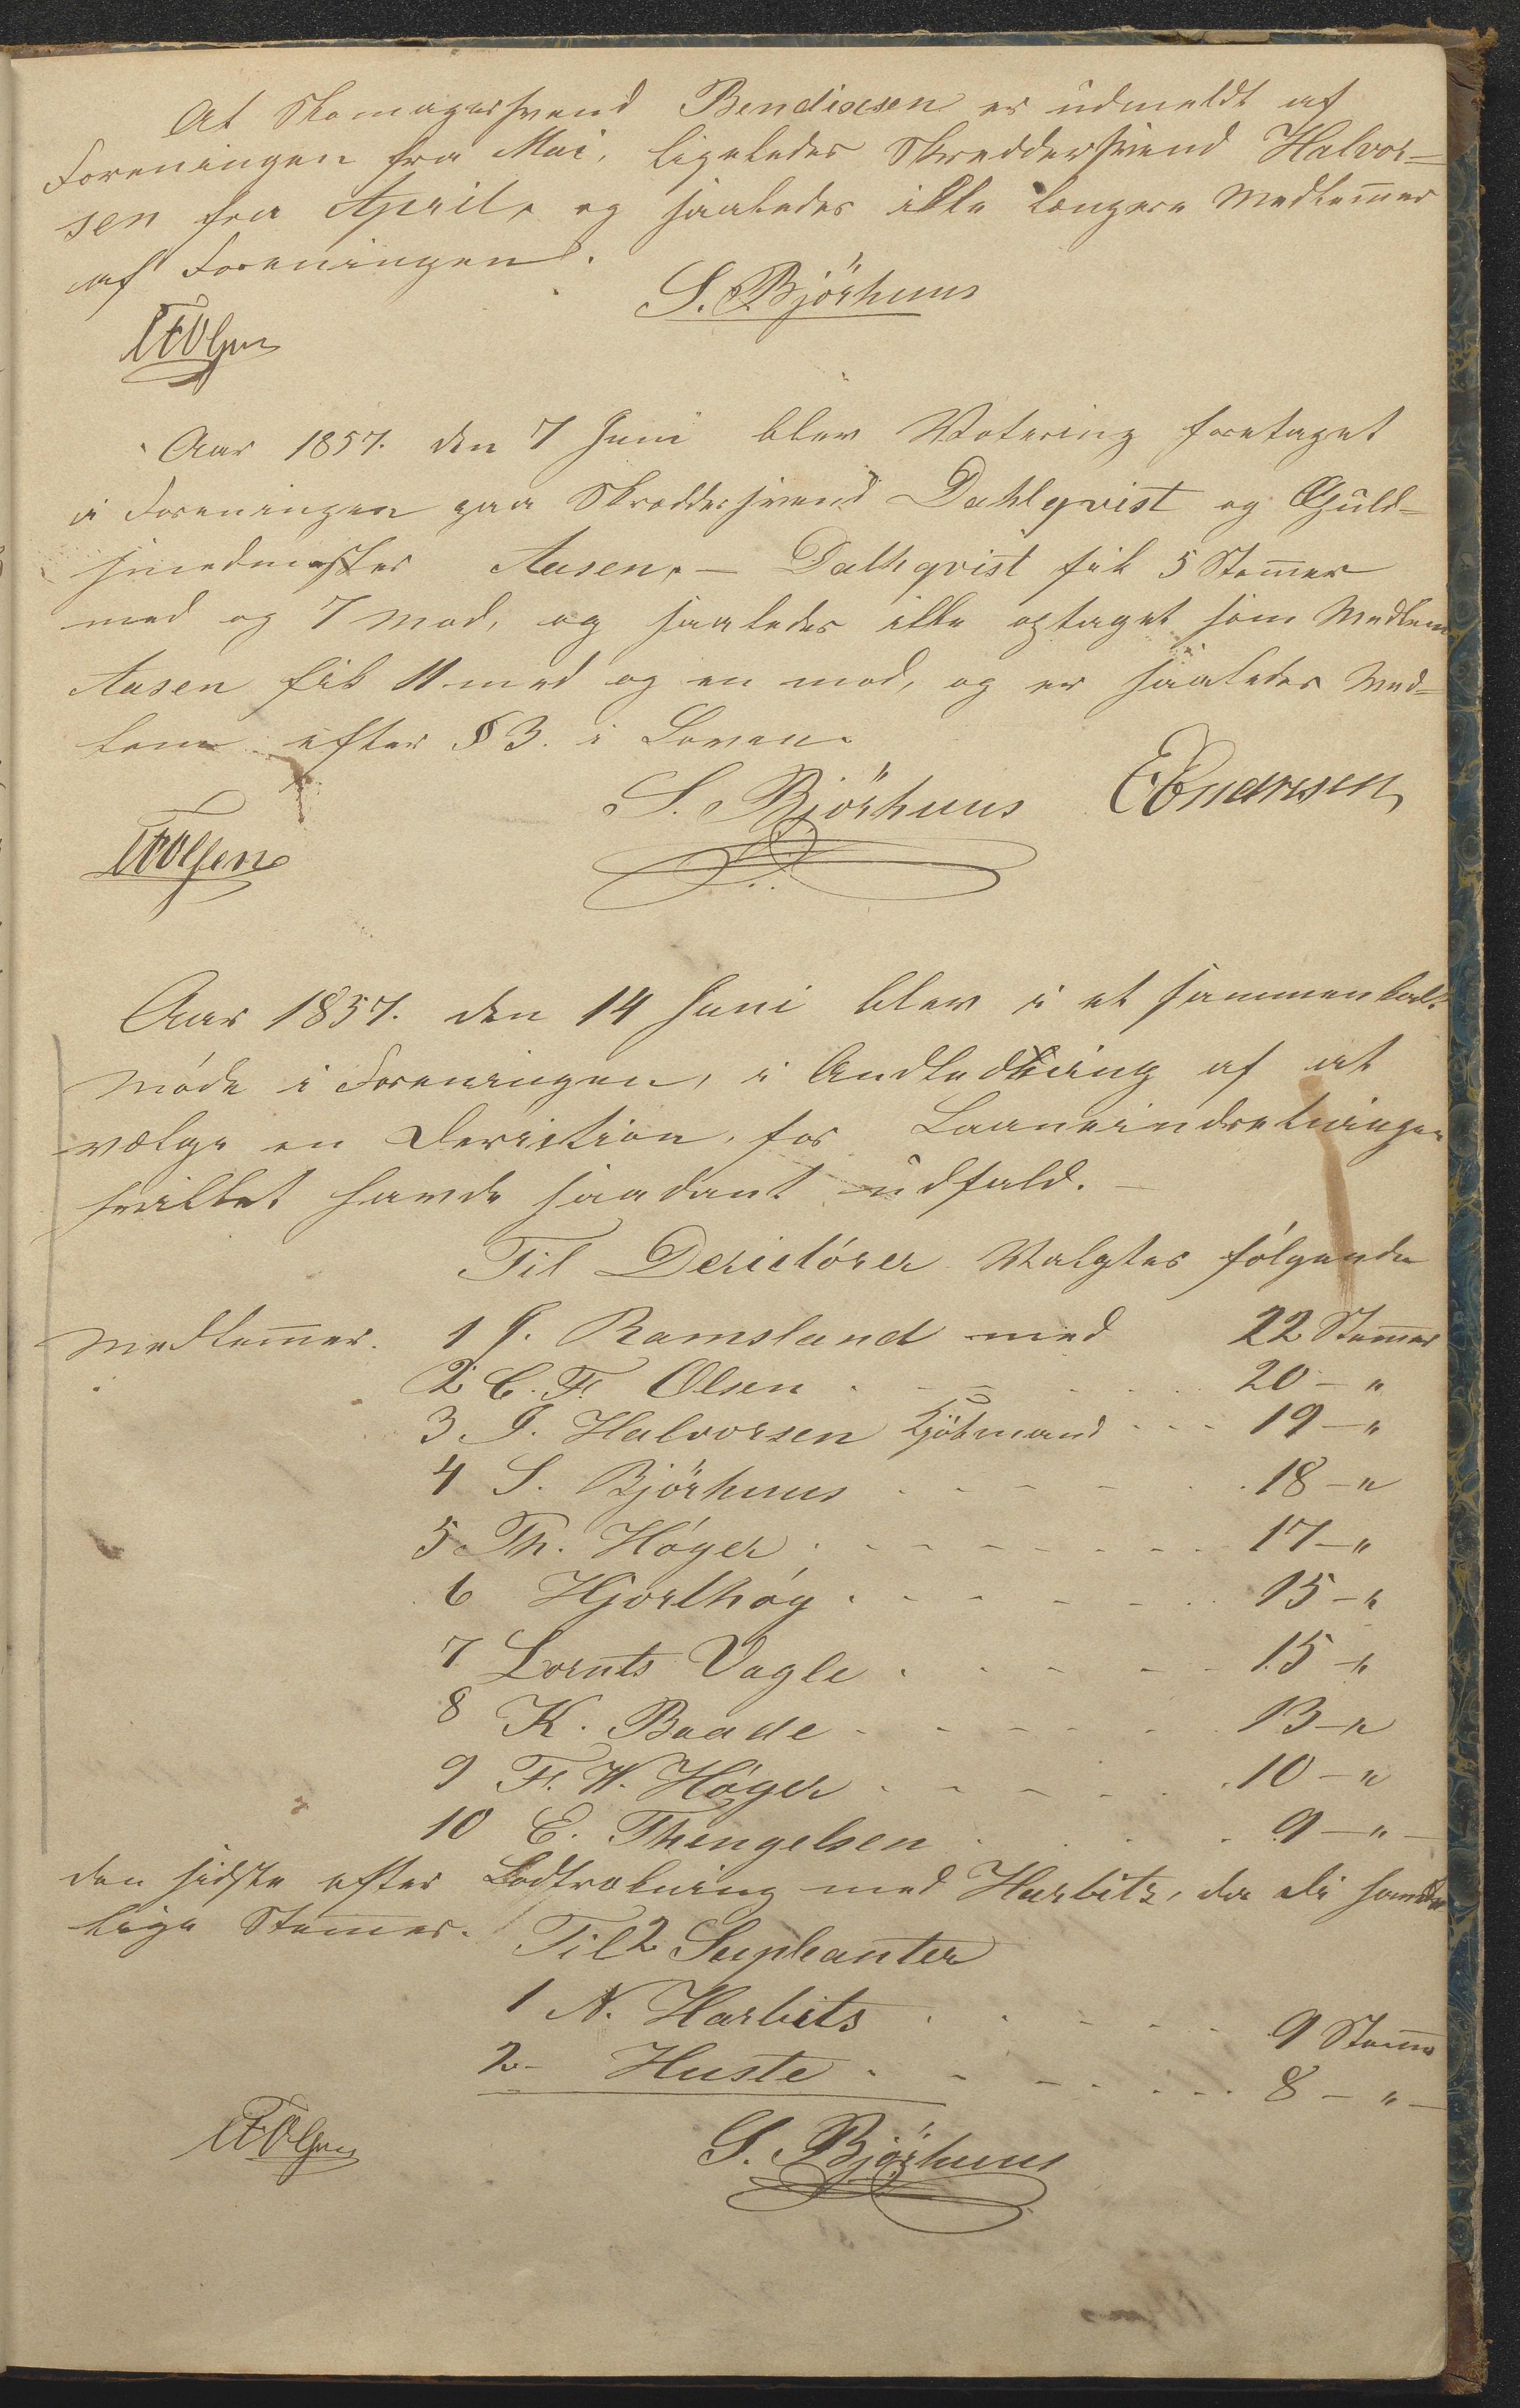 At Skomagersvend Bendixsen er udmeldt af
Foreningen fra Mai, ligeledes Skreddersvend Halvor=
sen fra April, og saaledes ikke længere Medlem̄er
af Foreningen.
S. Björhuus
CFOlsen
Aar 1857. den 7 Juni blev Votering foretaget
i Foreningen paa Skreddersvend Dahlqvist og Guld=
smedmester Aasen, — Dalhqvist fik 5 Stem̄er
med og 7 mod, og saaledes ikke optaget som Medlem
Aasen fik 11 med og en mod, og er saaledes Med=
lem efter § 3. i Loven.
S. Björhuus
CFOlsen
Aar 1857. den 14 Juni blev i et sammenkalt
Møde i Foreningen, i Andledning af at
vælge en Deriction, for Laaneindretningen
hvilket havde saadant udfald. —
Til Derictörer Valgtes følgende
Medlem̄er. 1 J. Ramsland med 22 Stem̄er
2 C. F. Olsen . - - . 20 — "
3 J. Halvorsen Kjöbmand - - - 19 — "
4 S. Björhuus . - - - - . 18 — "
5 Th. Höger . - - - - - - 17 — "
6 Hjorthøg . - - - - . 15 — "
7 Lornts Vagle . - - - - 15 — "
8 K. Baade - - - - - . 13 — "
9 F. W. Höger . - - - . . 10 — "
10 E. Thengelsen . . . - 9 — " —
den sidste efter Lodtrækning med Harbitz, da de havde
lige Stem̄er. Til 2 Supleanter
1 N. Harbits . . - - - 9 Stem̄er
2 - Huste . - - - - - 8 — " —
CFOlsen
S. Björhuus